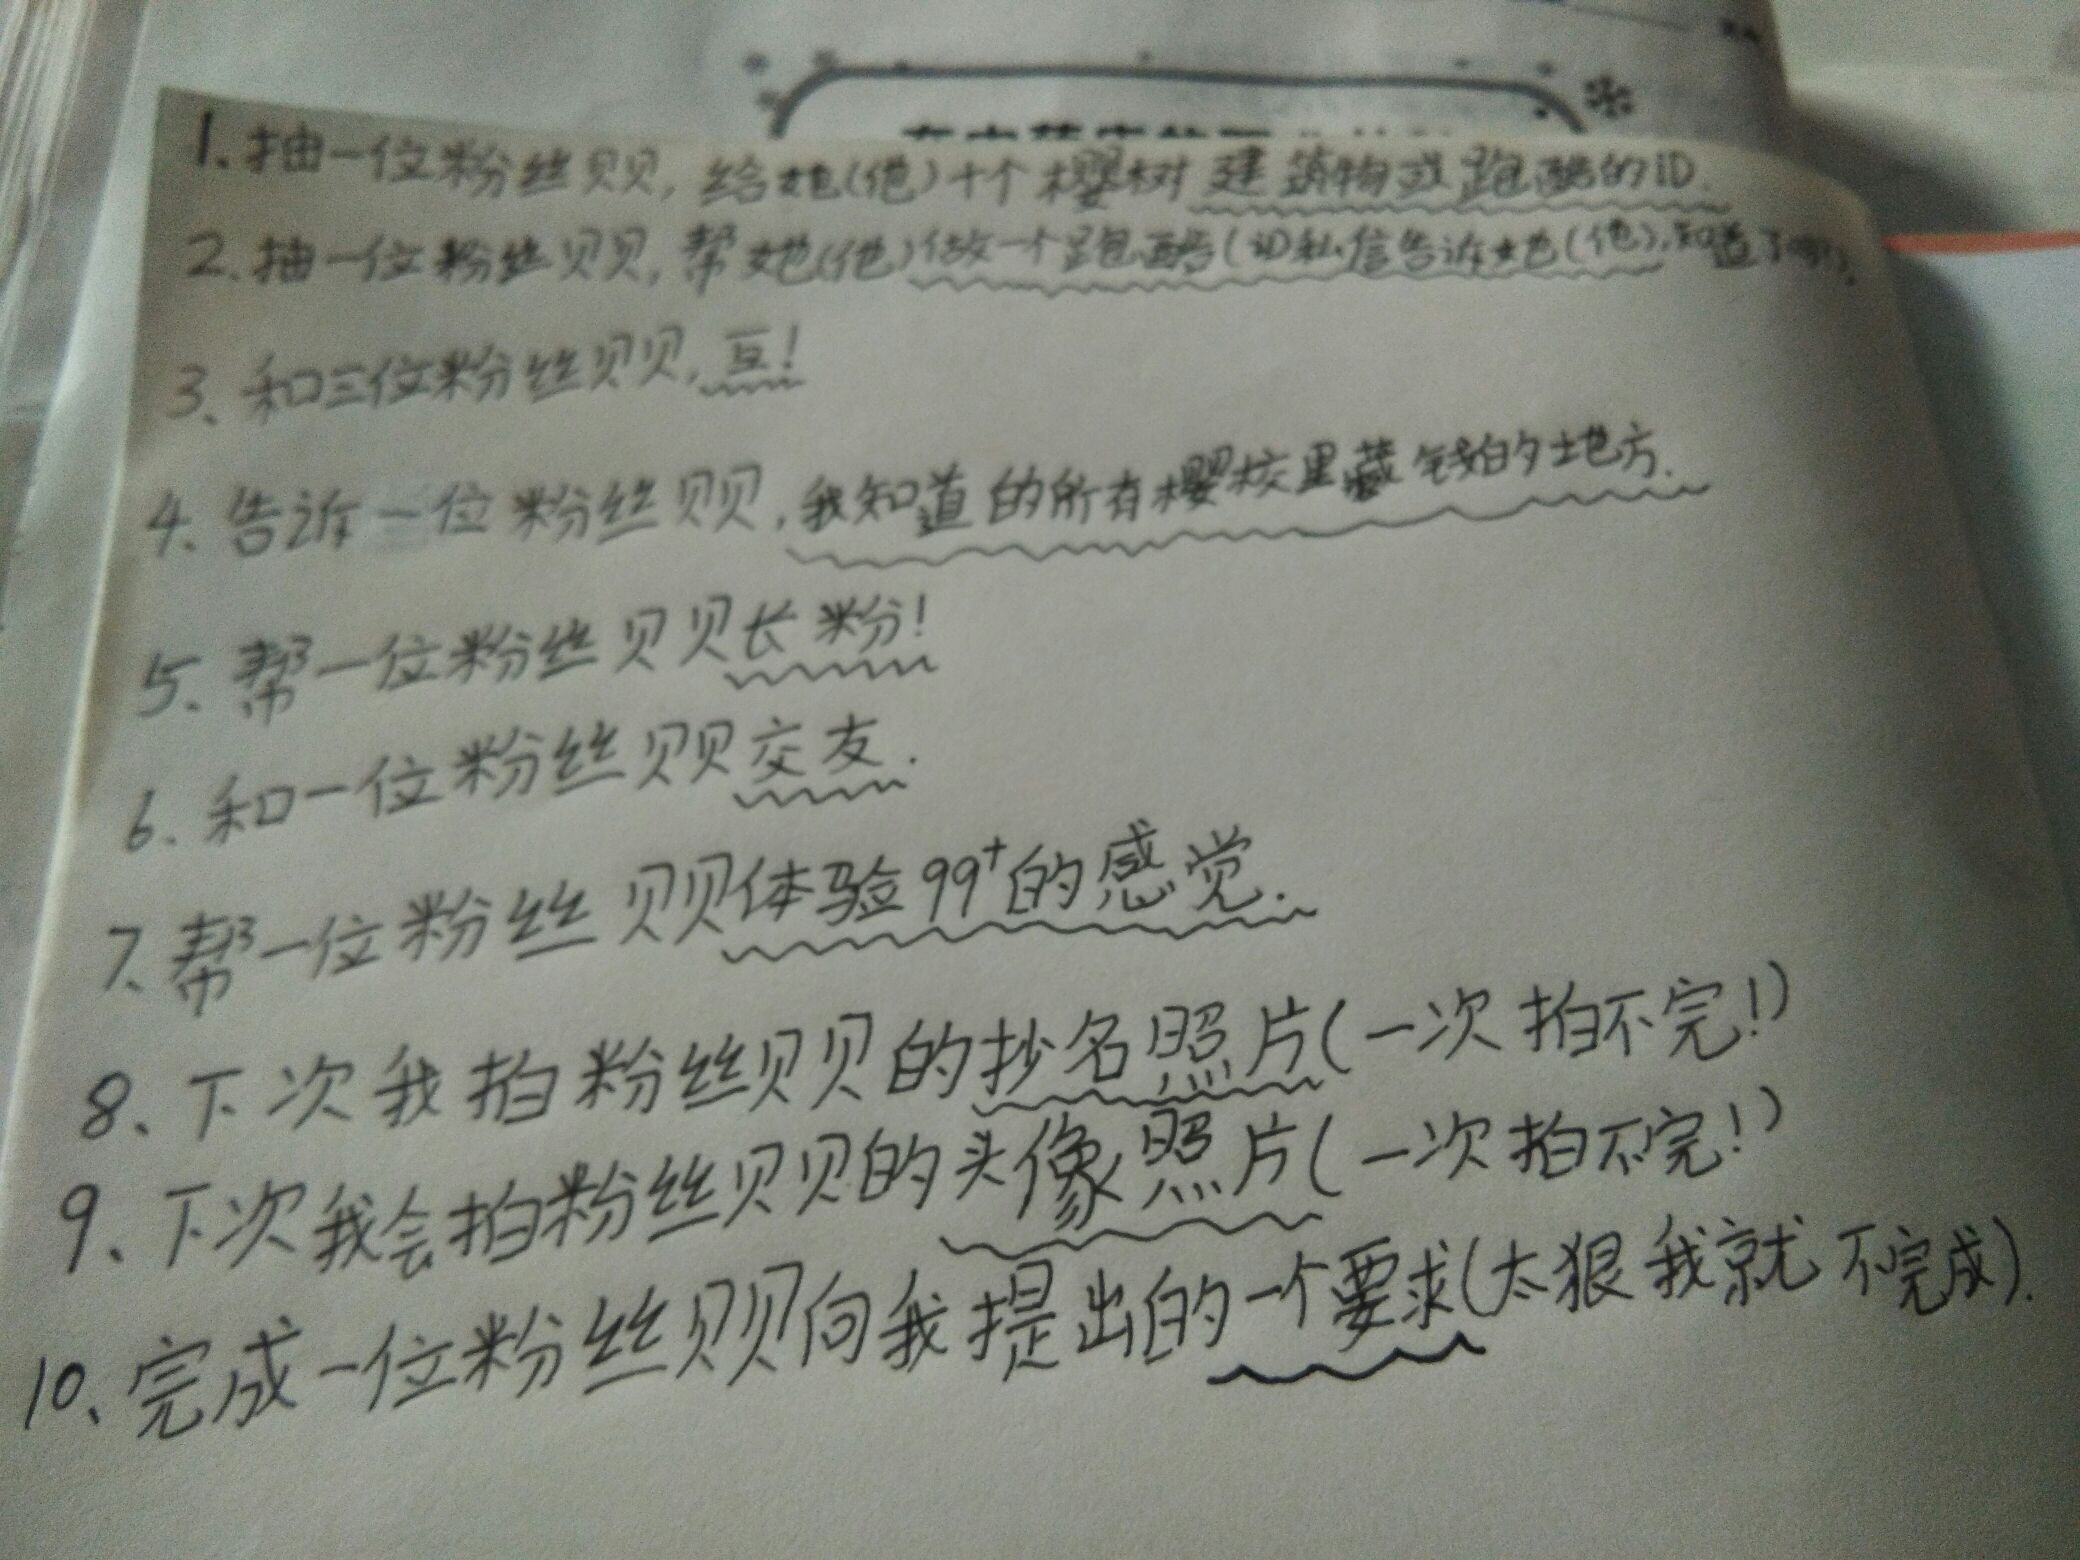 1.抽一位粉丝贝贝,给她(他)十个樱树建筑物或跑酷的iD.
2.抽一位粉丝贝贝,帮她(他)做一个跑酷(iD私信告诉她(他),知道了
3、和三位粉丝贝贝,互!
4、告诉一位粉丝贝贝,我知道的所有樱校里藏钱的地方.
5、帮一位粉丝贝贝长粉!
6.和一位粉丝贝贝交友.
7、帮一位粉丝贝贝体验99+的感觉.
8、下次我拍粉丝贝贝的抄名照片(一次拍不完!)
9、下次我会拍粉丝贝贝的头像照片(一次拍不完!)
10、完成一位粉丝贝贝向我提出的一个要求(太狠我就不完成).